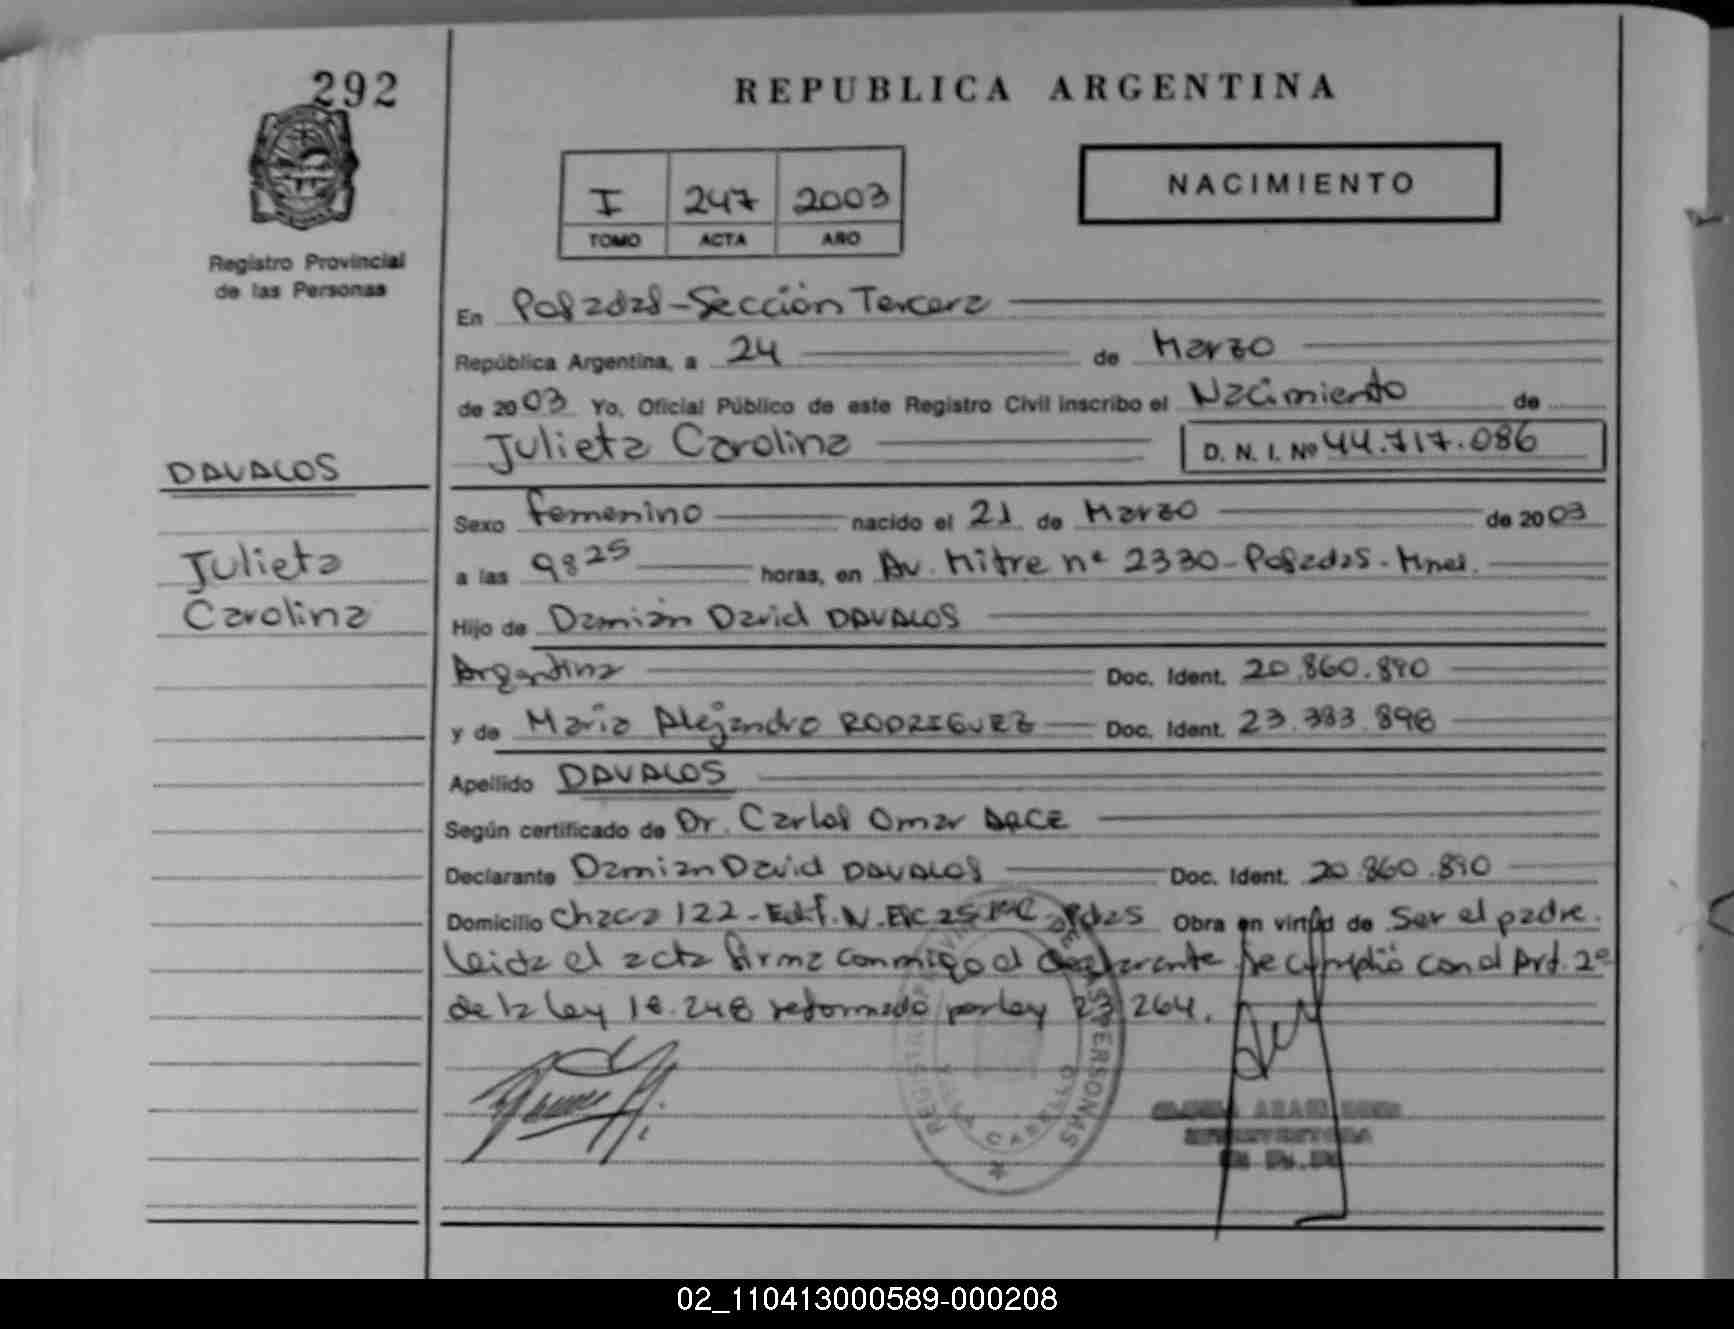 292
REPUBLICA ARGENTINA
I 247 2003
TOMO ACTA AÑO
NACIMIENTO
Registro Provincial
de las Personas
En Posadas-Sección Tercera
República Argentina, a 24 de Marzo
de 2003 Yo, Oficial Público de este Registro Civil inscribo el Nacimiento de
Julieta Carolina D. N. I. Nº 44.717.086
DAVALOS
Sexo femenino nacido el 21 de Marzo de 2003
Julieta
a las 9825 horas, en Av. Mitre nº 2330-Posadas-Mnes.
Carolina
Hijo de Damián David DAVALOS
Argentina Doc. Ident. 20.860.890
y de Maria Alejandra RODRIGUEZ Doc. Ident. 23.383.898
Apellido DAVALOS
Según certificado de Dr. Carlos Omar ARCE
Declarante Damian David DAVALOS Doc. Ident. 20.860.890
Domicilio Chacra 122-Edif. N. Pdas Obra en virtud de Ser el padre.
leida el acta firma conmigo el declarante se cumplió con el Art. 2º
de la ley 18.248 reformado por ley 23.264.
REGISTRO PROVINCIAL DE LAS PERSONAS
02_110413000589-000208